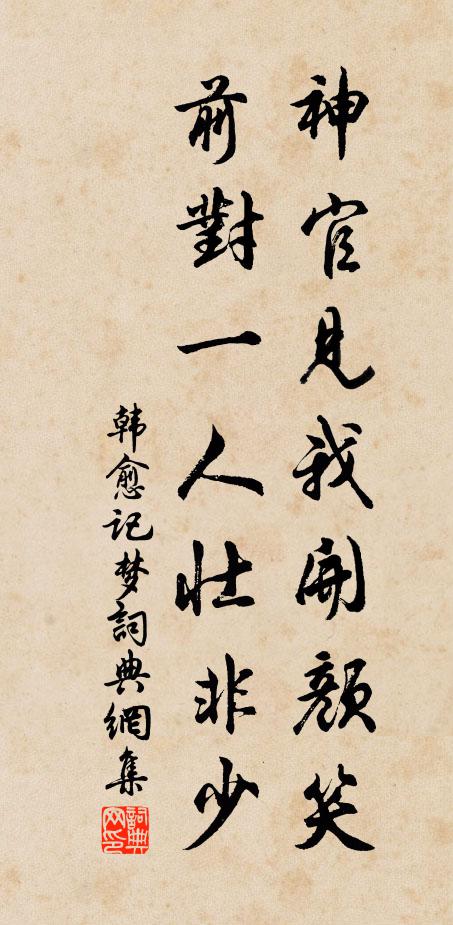 神官見我開顏笑
前對一人壯非少
韩愈记梦詞典網集
詞典
网印